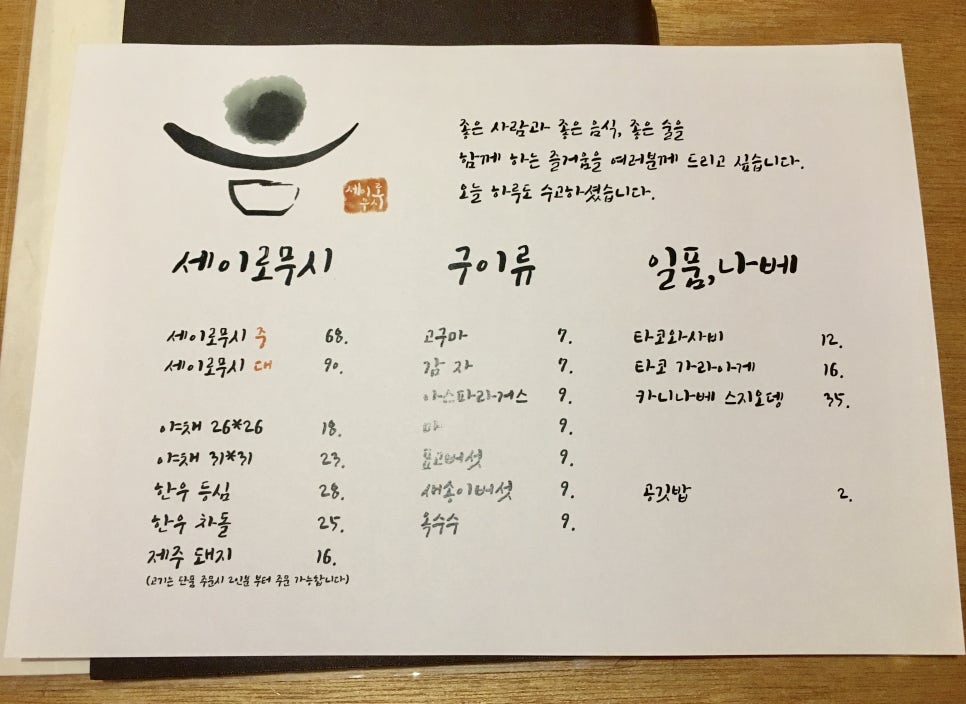 세이로
무시
좋은 사람과 좋은 음식, 좋은 술을
함께 하는 즐거움을 여러분께 드리고 싶습니다.
오늘 하루도 수고하셨습니다.
세이로무시
세이로무시 주 68.
세이로무시 대 90.
야채 26*26 18.
야채 31*31 23.
한우 등심 28.
한우 차돌 25.
제주 돼지 16.
(고기는 단품 주문시 2인분 부터 주문 가능합니다)
구이류
고구마 7.
감자 7.
아스파라거스 9.
마 9.
표고버섯 9.
새송이버섯 9.
옥수수 9.
일품,나베
타코와사비 12.
타코 가라아게 16.
카니나베 스지오뎅 35.
공깃밥 2.